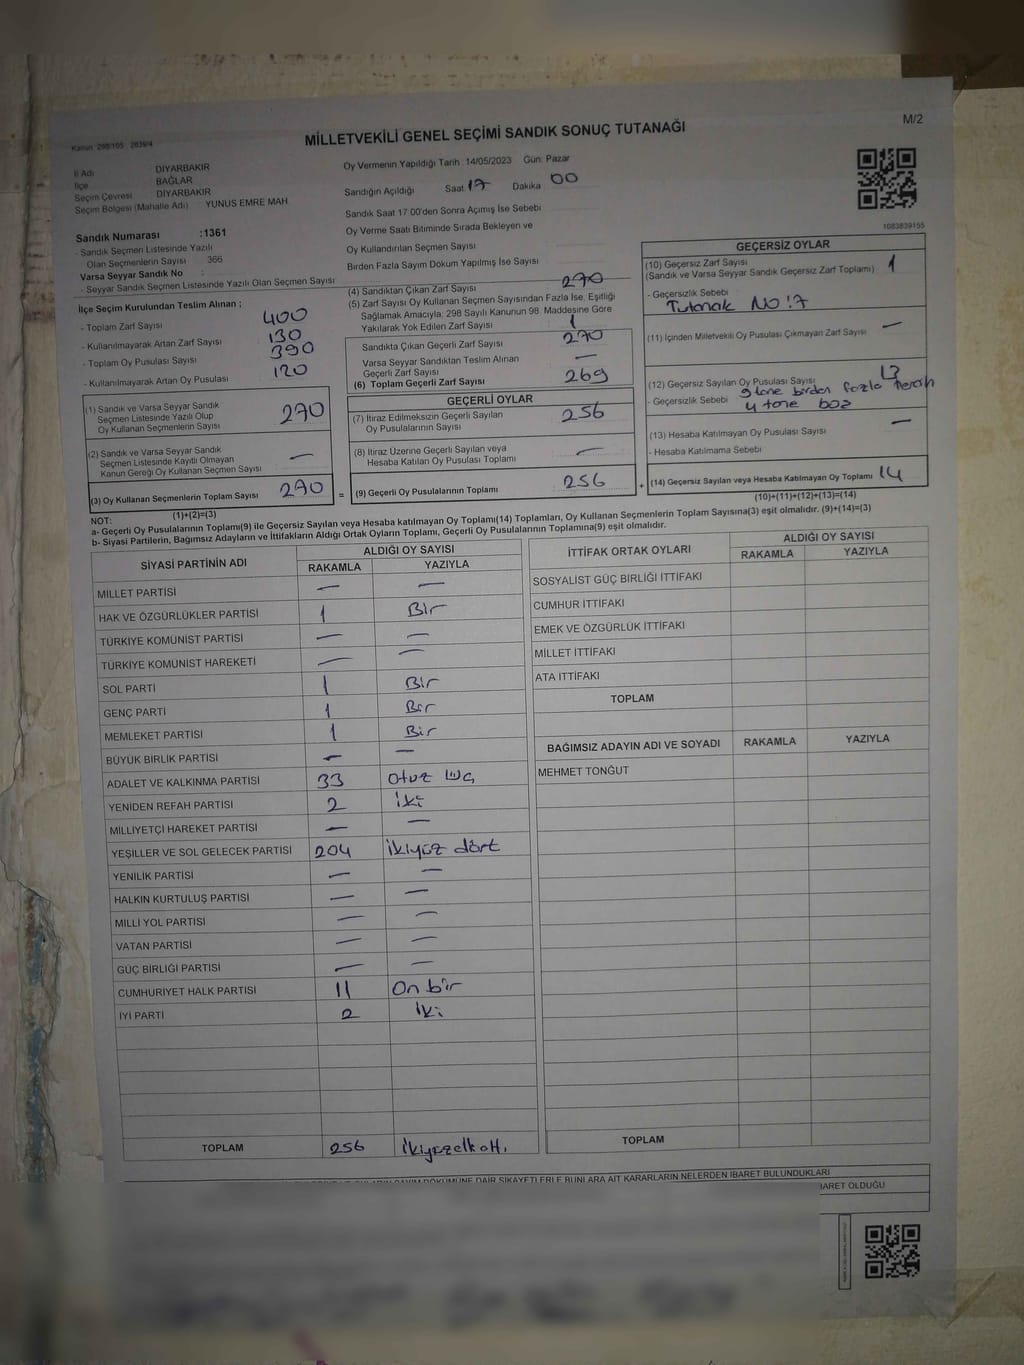 M/2
Kanun 298/105 2839/4
MİLLETVEKİLİ GENEL SEÇİMİ SANDIK SONUÇ TUTANAĞI
İl Adı DİYARBAKIR
İlçe BAĞLAR
Seçim Çevresi DİYARBAKIR
Seçim Bölgesi (Mahalle Adı) YUNUS EMRE MAH.
Sandık Numarası :1361
- Sandık Seçmen Listesinde Yazılı
Olan Seçmenlerin Sayısı 366
Varsa Seyyar Sandık No :
- Seyyar Sandık Seçmen Listesinde Yazılı Olan Seçmen Sayısı
Oy Vermenin Yapıldığı Tarih 14/05/2023 Gün: Pazar
Sandığın Açıldığı Saat 17 Dakika 00
Sandık Saat 17:00'den Sonra Açmış İse Sebebi
Oy Verme Saati Bitiminde Sırada Bekleyen ve
Oy Kullandırılan Seçmen Sayısı
Birden Fazla Sayım Döküm Yapılmış İse Sayısı
1083839155
İlçe Seçim Kurulundan Teslim Alınan ;
- Toplam Zarf Sayısı 400
- Kullanılmayarak Artan Zarf Sayısı 130
- Toplam Oy Pusulası Sayısı 390
- Kullanılmayarak Artan Oy Pusulası 120
(1) Sandık ve Varsa Seyyar Sandık
Seçmen Listesinde Yazılı Olup
Oy Kullanan Seçmenlerin Sayısı 270
(2) Sandık ve Varsa Seyyar Sandık
Seçmen Listesinde Kayıtlı Olmayan
Kanun Gereği Oy Kullanan Seçmen Sayısı —
(3) Oy Kullanan Seçmenlerin Toplam Sayısı 270
(1)+(2)=(3)
(4) Sandıktan Çıkan Zarf Sayısı 270
(5) Zarf Sayısı Oy Kullanan Seçmen Sayısından Fazla İse, Eşitliği
Sağlamak Amacıyla, 298 Sayılı Kanunun 98. Maddesine Göre
Yakılarak Yok Edilen Zarf Sayısı 1
Sandıkta Çıkan Geçerli Zarf Sayısı 270
Varsa Seyyar Sandıktan Teslim Alınan
Geçerli Zarf Sayısı —
(6) Toplam Geçerli Zarf Sayısı 269
GEÇERLİ OYLAR
(7) İtiraz Edilmeksizin Geçerli Sayılan
Oy Pusulalarının Sayısı 256
(8) İtiraz Üzerine Geçerli Sayılan veya
Hesaba Katılan Oy Pusulası Toplamı —
= (9) Geçerli Oy Pusulalarının Toplamı 256
GEÇERSİZ OYLAR
(10) Geçersiz Zarf Sayısı
(Sandık ve Varsa Seyyar Sandık Geçersiz Zarf Toplamı) 1
- Geçersizlik Sebebi
Tutanak NO:7
(11) İçinden Milletvekili Oy Pusulası Çıkmayan Zarf Sayısı —
(12) Geçersiz Sayılan Oy Pusulası Sayısı 13
- Geçersizlik Sebebi 9 tane birden fazla tercih
4 tane boş
(13) Hesaba Katılmayan Oy Pusulası Sayısı —
- Hesaba Katılmama Sebebi
+ (14) Geçersiz Sayılan veya Hesaba Katılmayan Oy Toplamı 14
(10)+(11)+(12)+(13)=(14)
NOT:
a- Geçerli Oy Pusulalarının Toplamı(9) ile Geçersiz Sayılan veya Hesaba katılmayan Oy Toplamı(14) Toplamları, Oy Kullanan Seçmenlerin Toplam Sayısına(3) eşit olmalıdır. (9)+(14)=(3)
b- Siyasi Partilerin, Bağımsız Adayların ve İttifakların Aldığı Ortak Oyların Toplamı, Geçerli Oy Pusulalarının Toplamına(9) eşit olmalıdır.
SİYASİ PARTİNİN ADI ALDIĞI OY SAYISI
RAKAMLA YAZIYLA
MİLLET PARTİSİ — —
HAK VE ÖZGÜRLÜKLER PARTİSİ 1 Bir
TÜRKİYE KOMÜNİST PARTİSİ — —
TÜRKİYE KOMÜNİST HAREKETİ — —
SOL PARTİ 1 Bir
GENÇ PARTİ 1 Bir
MEMLEKET PARTİSİ 1 Bir
BÜYÜK BİRLİK PARTİSİ — —
ADALET VE KALKINMA PARTİSİ 33 Otuz üç
YENİDEN REFAH PARTİSİ 2 iki
MİLLİYETÇİ HAREKET PARTİSİ — —
YEŞİLLER VE SOL GELECEK PARTİSİ 204 ikiyüz dört
YENİLİK PARTİSİ — —
HALKIN KURTULUŞ PARTİSİ — —
MİLLİ YOL PARTİSİ — —
VATAN PARTİSİ — —
GÜÇ BİRLİĞİ PARTİSİ — —
CUMHURİYET HALK PARTİSİ 11 On bir
İYİ PARTİ 2 iki
TOPLAM 256 ikiyüzellialtı
İTTİFAK ORTAK OYLARI ALDIĞI OY SAYISI
RAKAMLA YAZIYLA
SOSYALİST GÜÇ BİRLİĞİ İTTİFAKI
CUMHUR İTTİFAKI
EMEK VE ÖZGÜRLÜK İTTİFAKI
MİLLET İTTİFAKI
ATA İTTİFAKI
TOPLAM
BAĞIMSIZ ADAYIN ADI VE SOYADI RAKAMLA YAZIYLA
MEHMET TONĞUT
TOPLAM
DÖKÜMÜNE DAİR ŞİKAYETLERLE BUNLARA AİT KARARLARIN NELERDEN İBARET BULUNDUKLARI
İBARET OLDUĞU